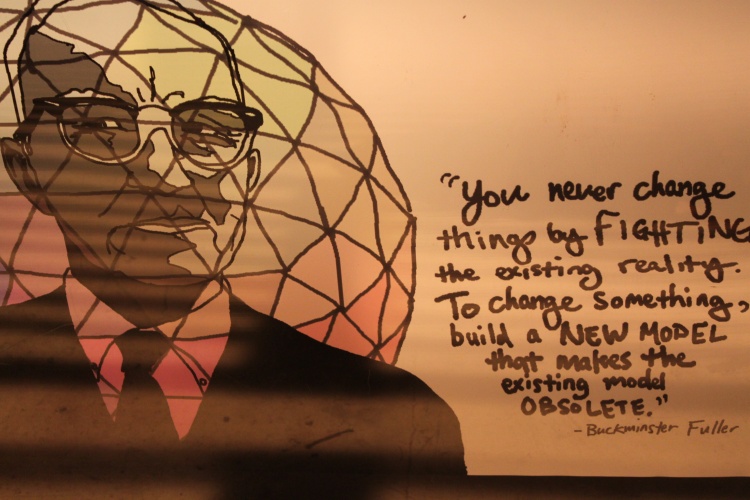 "You never change
things by FIGHTING
the existing reality.
To change something,
build a NEW MODEL
that makes the
existing model
OBSOLETE."
-Buckminster Fuller